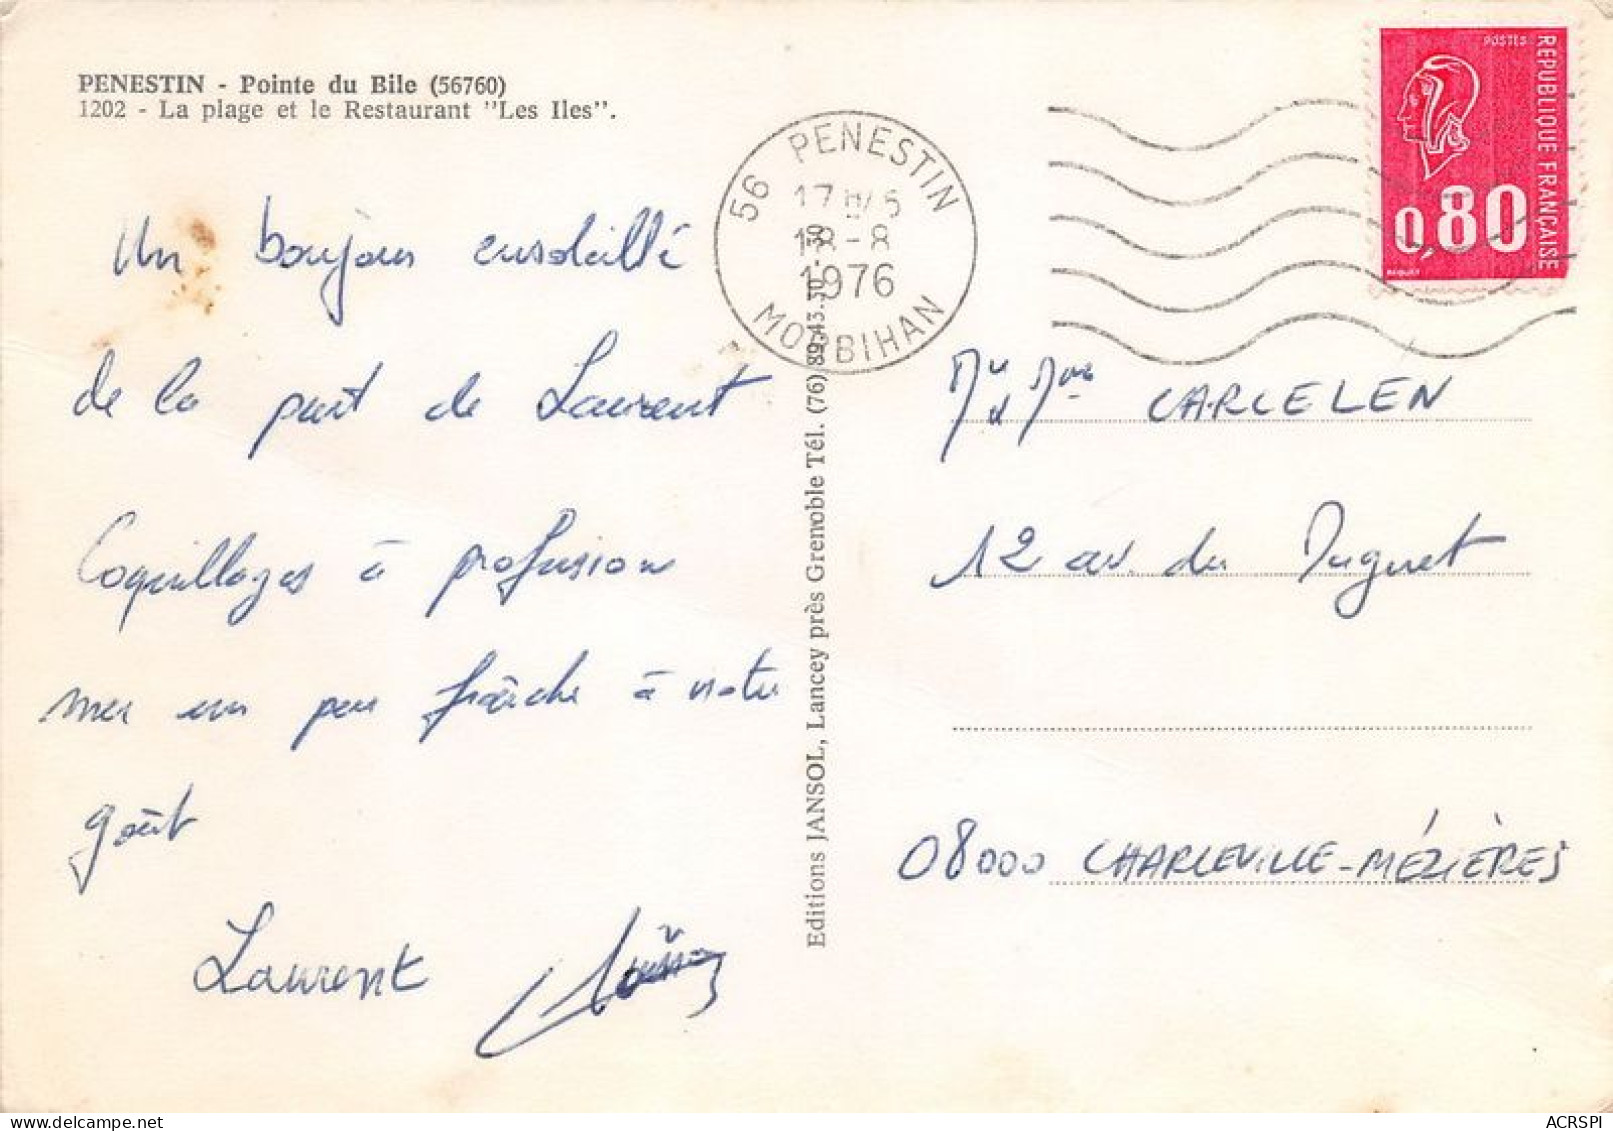 PENESTIN - Pointe du Bile (56760)
1202 - La plage et le Restaurant "Les Iles".
Un bonjour ensoleillé
de la part de Laurent
Coquillages à profusion
mer un peu fraîche à notre
goût
Laurent
Editions JANSOL, Lancey près Grenoble Tél. (76) 89.43.30
56 PENESTIN
18-8
1976
MORBIHAN
POSTES
REPUBLIQUE FRANÇAISE
0,80
BEQUET
Mr et Mme CARCELEN
12 av. du Muguet
08000 CHARLEVILLE-MÉZIÈRES
ACRSPI